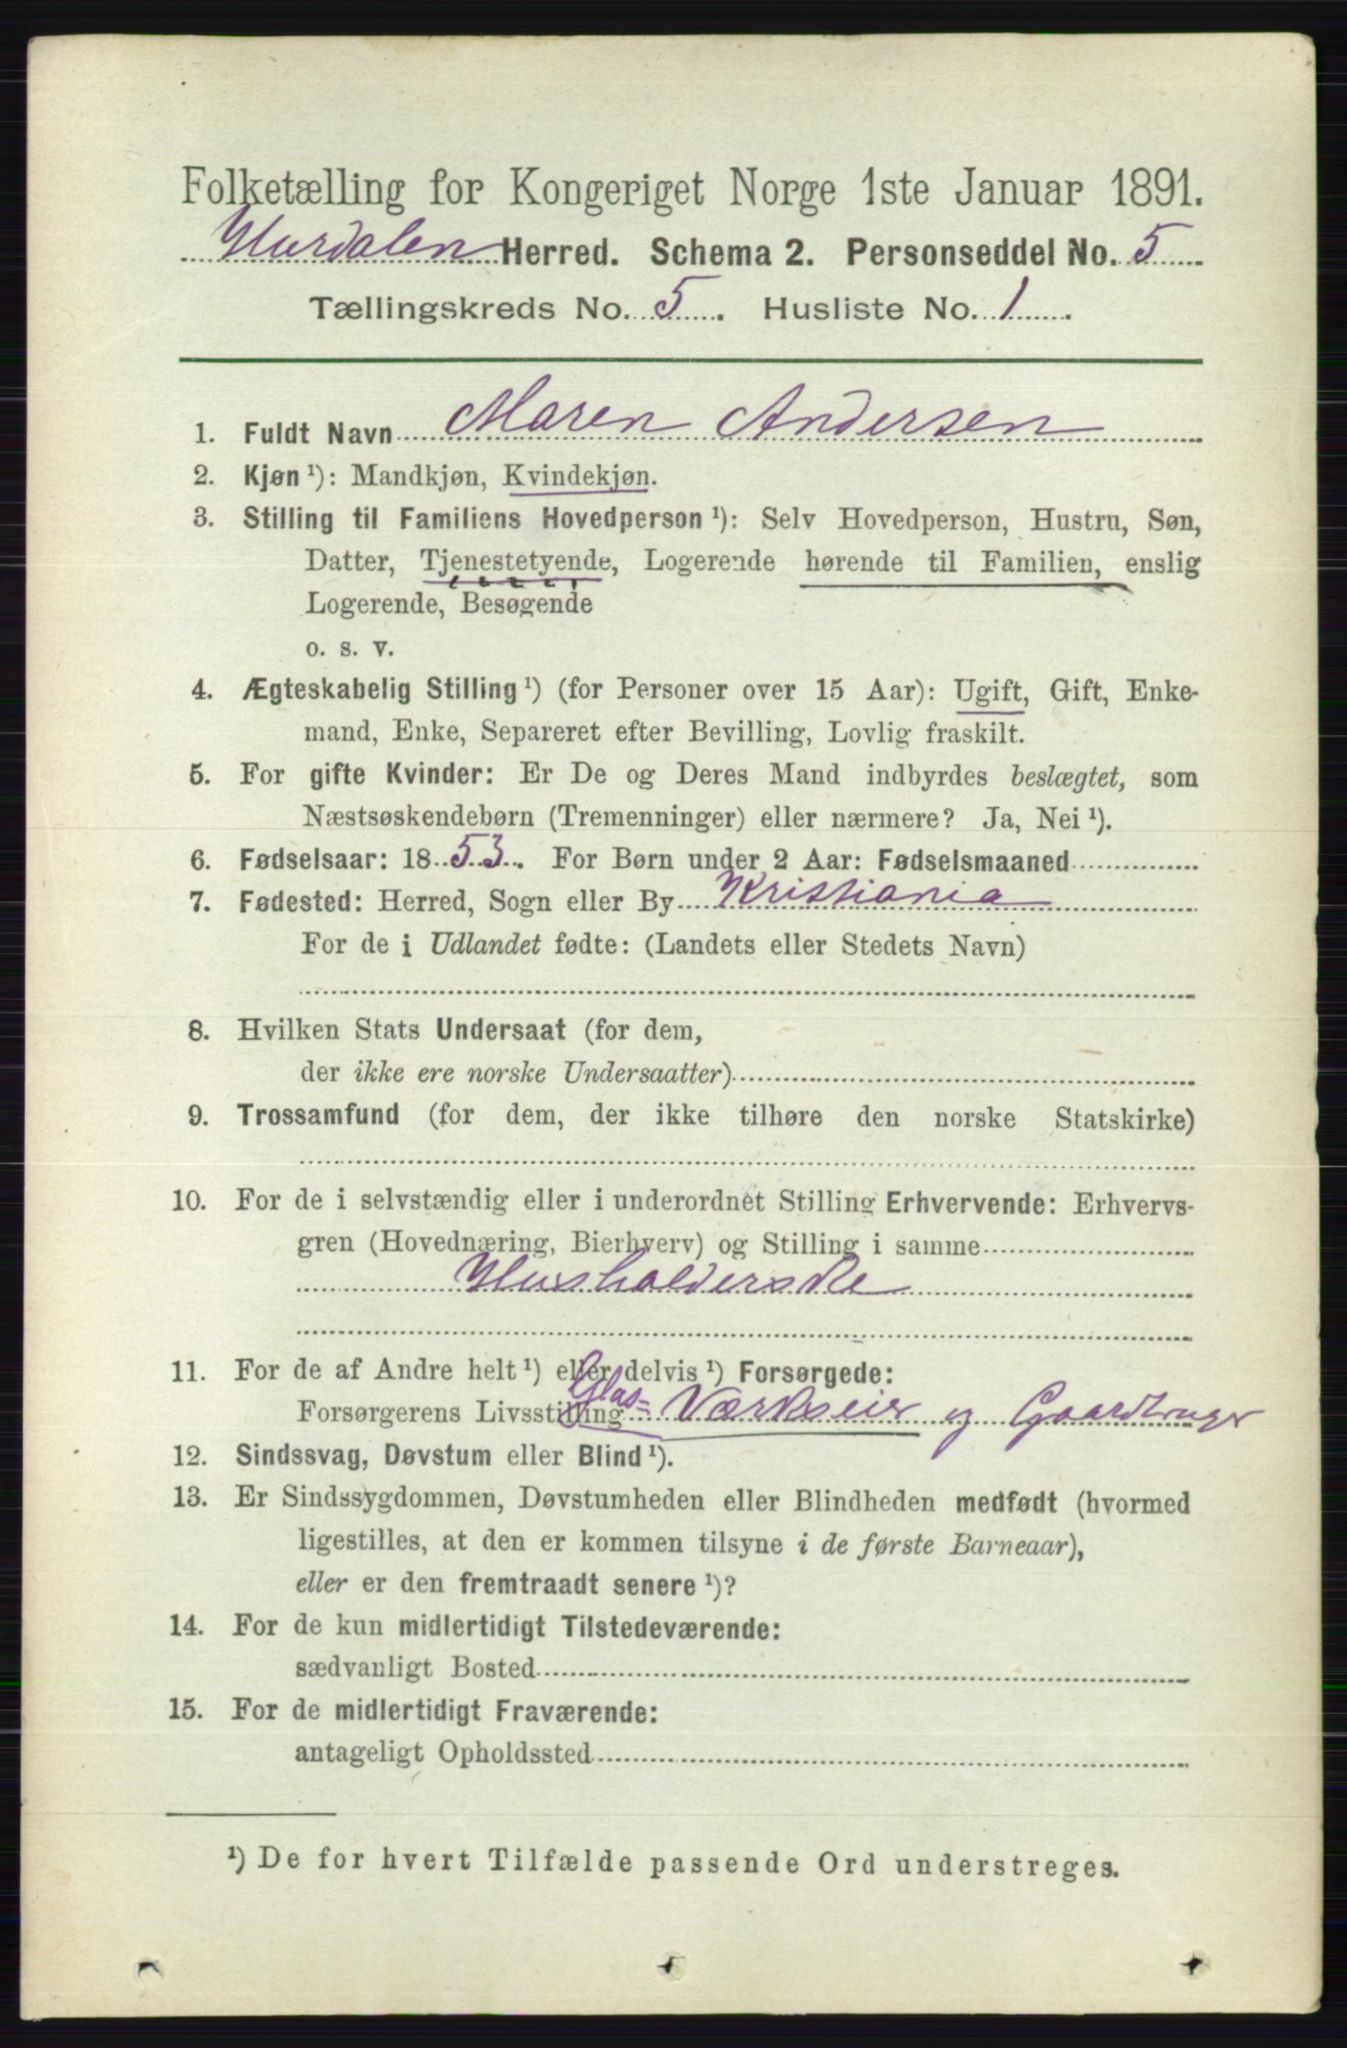 Folketælling for Kongeriget Norge 1ste Januar 1891.
Hurdalen Herred. Schema 2. Personseddel No. 5
Tællingskreds No. 5. Husliste No. 1.
1. Fuldt Navn Maren Andersen
2. Kjøn ¹): Mandkjøn, Kvindekjøn.
3. Stilling til Familiens Hovedperson ¹): Selv Hovedperson, Hustru, Søn,
Datter, Tjenestetyende, Logerende hørende til Familien, enslig
Logerende, Besøgende
o. s. v.
4. Ægteskabelig Stilling ¹) (for Personer over 15 Aar): Ugift, Gift, Enke-
mand, Enke, Separeret efter Bevilling, Lovlig fraskilt.
5. For gifte Kvinder: Er De og Deres Mand indbyrdes beslægtet, som
Næstsøskendebørn (Tremenninger) eller nærmere? Ja, Nei ¹).
6. Fødselsaar: 1853. For Børn under 2 Aar: Fødselsmaaned
7. Fødested: Herred, Sogn eller By Kristiania
For de i Udlandet fødte: (Landets eller Stedets Navn)
8. Hvilken Stats Undersaat (for dem,
der ikke ere norske Undersaatter)
9. Trossamfund (for dem, der ikke tilhøre den norske Statskirke)
10. For de i selvstændig eller i underordnet Stilling Erhvervende: Erhvervs-
gren (Hovednæring, Bierhverv) og Stilling i samme
Husholderske
11. For de af Andre helt ¹) eller delvis ¹) Forsørgede:
Forsørgerens Livsstilling Glas= Værkseier og Gaardbruger
12. Sindssvag, Døvstum eller Blind ¹).
13. Er Sindssygdommen, Døvstumheden eller Blindheden medfødt (hvormed
ligestilles, at den er kommen tilsyne i de første Barneaar),
eller er den fremtraadt senere ¹)?
14. For de kun midlertidigt Tilstedeværende:
sædvanligt Bosted
15. For de midlertidigt Fraværende:
antageligt Opholdssted
¹) De for hvert Tilfælde passende Ord understreges.